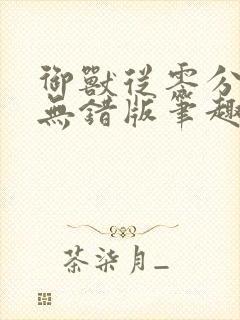 御獸從零分
無錯版筆趣
茶柒月_